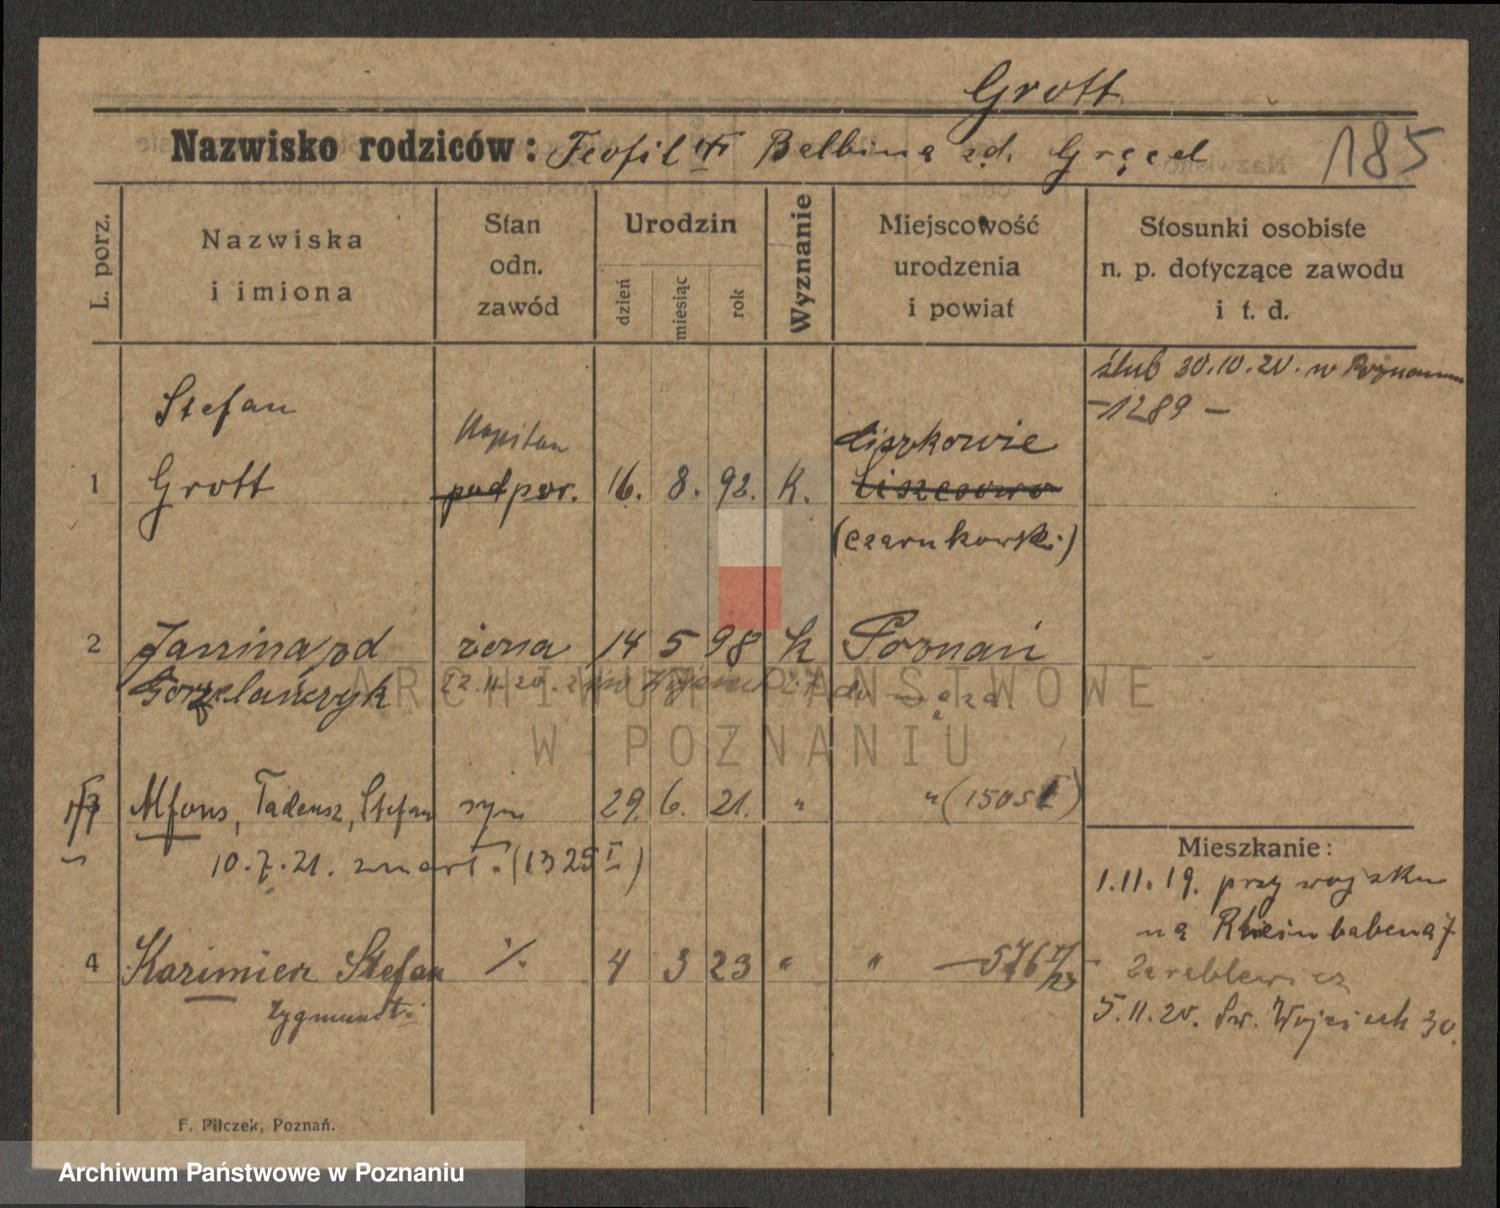 Grott
Nazwisko rodziców: Teofil i Balbina zd.
185
L. porz.
Nazwiska i imiona
Stan odn. zawód
Urodzin
dzień
miesiąc
rok
Wyznanie
Miejscowość urodzenia i powiat
Stosunki osobiste n. p. dotyczące zawodu i t. d.
ślub 30.10.20. w Poznaniu
-1289-
Stefan
Kapitan
1 Grott podpor. 16. 8. 92. K.
(czarnkowski)
2 Janina zd żona 14 5 98 k Poznań
Gorzelańczyk 22.11.20.
ARCHIWUM PAŃSTWOWE
W POZNANIU
3 Alfons, Tadeusz, Stefan syn 29. 6. 21. " " (1505 I)
10.7.21. zmarł. (1325 I)
4 Kazimierz Stefan ./. 4 3 23 " " -576 II/23-
Zygmunt
Mieszkanie:
1.11.19. przy wojsku
na Rheinbabena 7
5.11.20. Św. Wojciech 30.
F. Pilczek, Poznań.
Archiwum Państwowe w Poznaniu